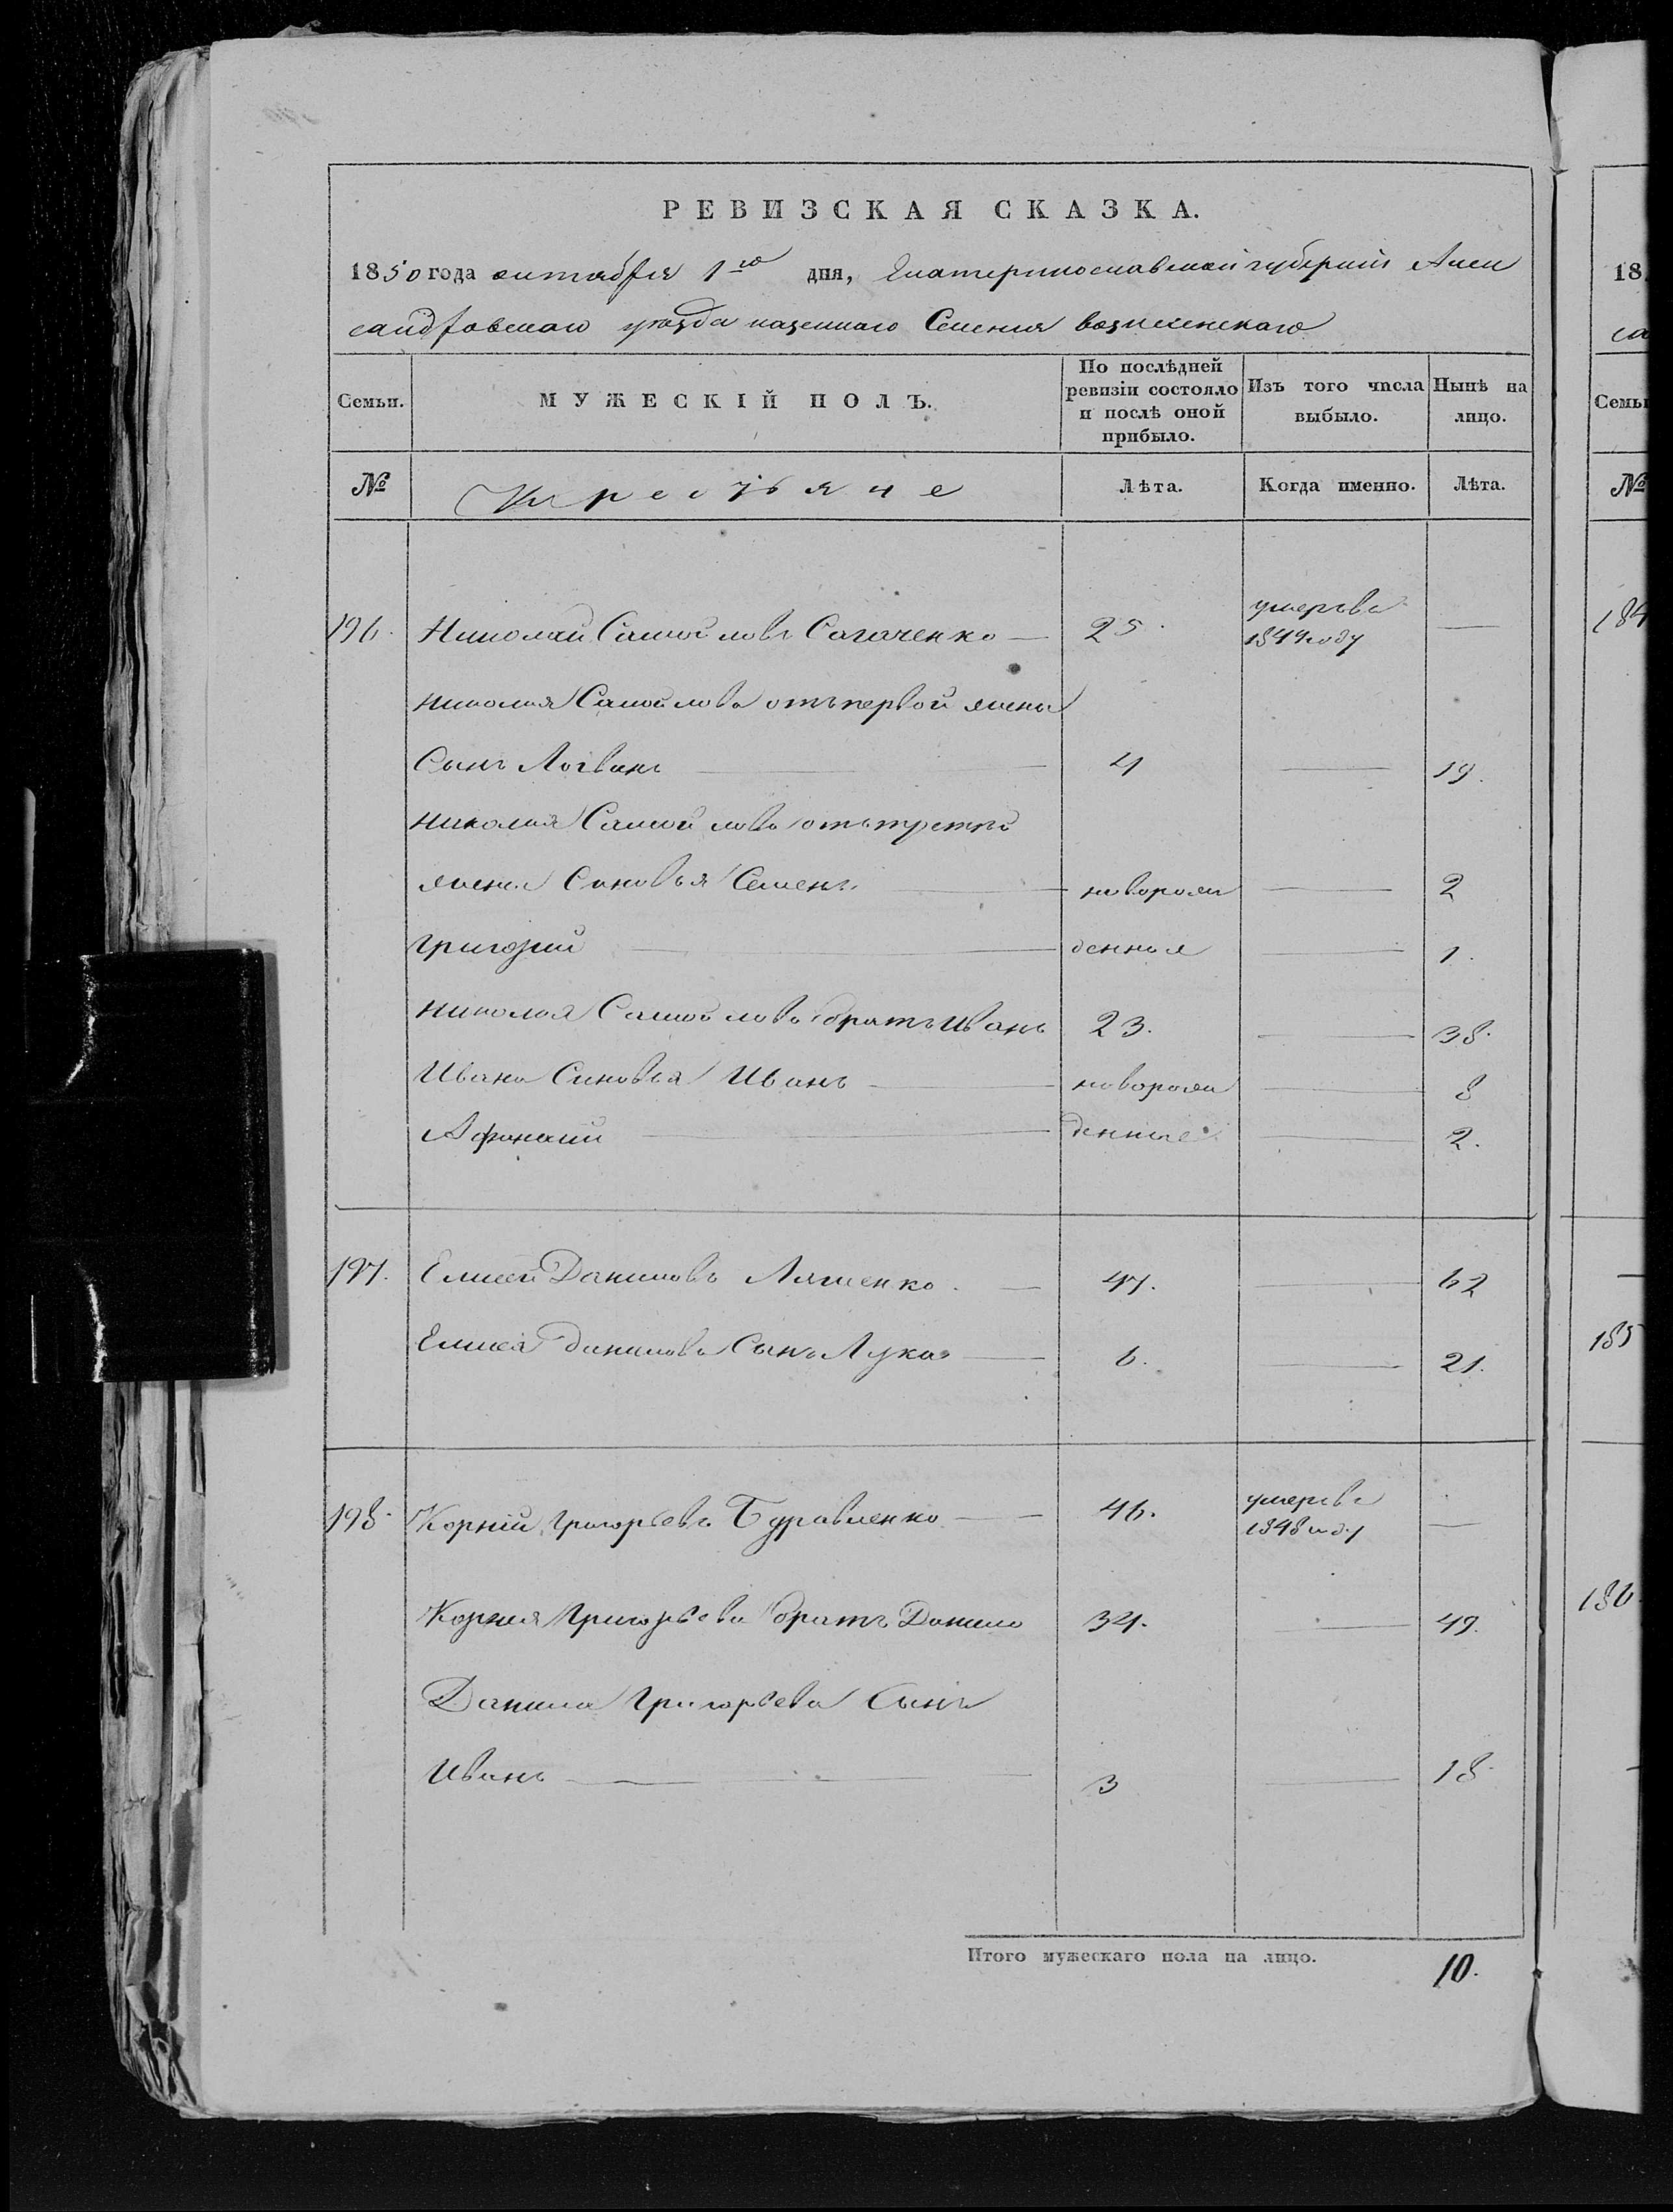 РЕВИЗСКАЯ СКАЗКА.
1850 года октября 1го дня, Екатеринославской губернии Алек
сандровскаго уезда казеннаго Селения вознесенскаго
Семьи. МУЖЕСКІЙ ПОЛЪ. По послѣдней ревизіи состояло и послѣ оной прибыло. Изъ того числа выбыло. Нынѣ на лицо.
№ Крестьяне Лѣта. Когда именно. Лѣта.
196. Николай Самойловъ Сагаченко — 25. умеръ в 1849 году —
Николая Самойлова отъ первой жены
Сынъ Логвинъ — 4 — 19.
Николая Самойлова отъ третей
жены Сыновья Семенъ — новорож — 2
Григорий — денныя — 1.
Николая Самойлова братъ Иванъ 23. — 38.
Ивана Сыновья Иванъ — новорож — 8
Афанасий — денные — 2.
197. Елисей Даниловъ Ляшенко. — 47. — 62
Елисея Данилова Сынъ Лука — 6. — 21.
198. Корнѣй Григорьевъ Буравленко — 46. умеръ в 1848 году —
Корнея Григорьева братъ Данило 34. — 49.
Данила Григорьева Сынъ
Иванъ — 3 — 18.
Итого мужескаго пола на лицо. 10.
18
са
Семьи
№
184
185
186.